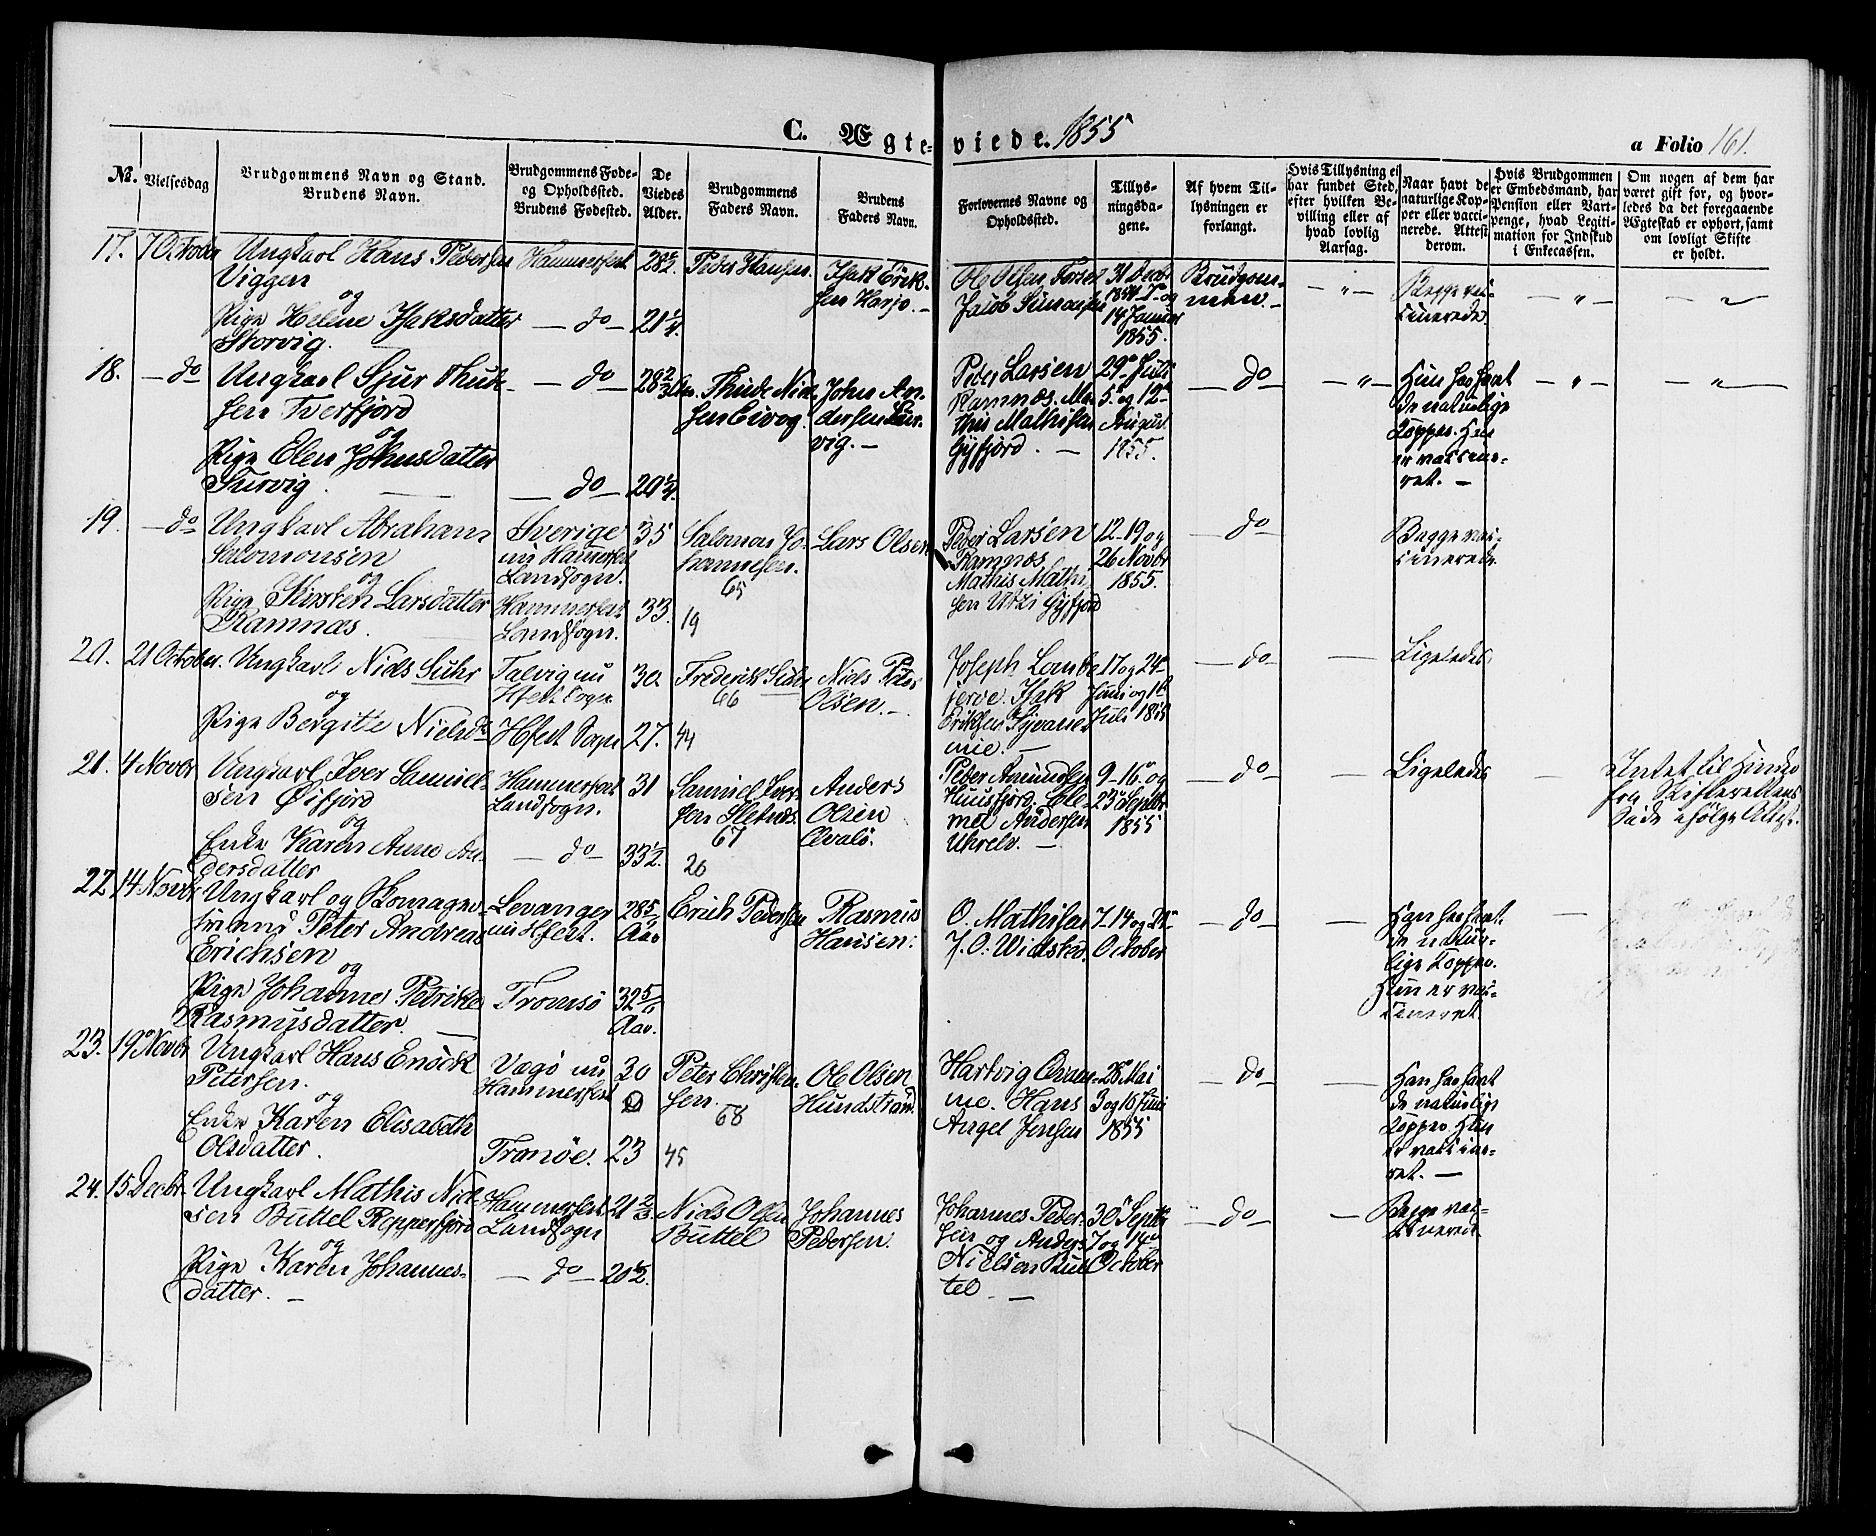 C. Ægteviede. 1855
a Folio 161.
No.
Vielsesdag
Brudgommens Navn og Stand.
Brudens Navn.
Brudgommens Føde-
og Opholdssted.
Brudens Fødested.
De
Viedes
Alder.
Brudgommens
Faders Navn.
Brudens
Faders Navn.
Forlovernes Navne og
Opholdssted.
Tillys-
ningsda-
gene.
Af hvem Til-
lysningen er
forlangt.
Hvis Tillysning ei
har fundet Sted,
efter hvilken Be-
villing eller af
hvad lovlig
Aarsag.
Naar havt de
naturlige Kop-
per eller vacci-
nerede. Attest
derom.
Hvis Brudgommen
er Embedsmand, har
Pension eller Vart-
penge, hvad Legiti-
mation for Indskud
i Enkecassen.
Om nogen af dem har
været gift før, og hvor-
ledes da det foregaaende
Ægteskab er ophørt, samt
om lovligt Skifte
er holdt.
17. 7 October Ungkarl Hans Pedersen
Viggen
og
Pige Helene Isaksdatter
Storvig.
Hammerfest
— do —
28 1/2.
21 1/4.
Peder Hansen.
Isak Erik-
sen Harjo. —
Ole Olsen
Jacob Simonsen
31 Decbr
1854 7de og
14 Januar
1855.
Brudgom-
men. —
— „ —
Begge vac-
cinerede.
— „ —
18. — do Ungkarl Sjur Thude-
sen Tverfjord
og
Pige Elen Johnsdatter
Survig.
— do —
— do —
28 2/3
20 1/4.
Thude Niel-
sen Eivog.
John An-
dersen
vig. —
Peder Larsen
Ramnæs. Ma-
this Mathisen
Gyfjord. —
29de Juli
5te og 12te
August
1855.
— do —
— „ —
Hun har havt
de naturlige
Kopper. Han
er vaccine-
ret. —
— „ —
— „ —
19. — do Ungkarl Abraham
Salomonsen
og
Pige Kirsten Larsdatter
Ramnæs.
Sverige
nu Hammerfest
Landsogn.
Hammerfest
Landsogn.
35
33.
Salomon Jo-
hannesen.
65
19
Lars Olsen
Peder Larsen
Ramnæs
Mathis Mathi-
sen Utzi Gyfjord
12-19 og
26 Novbr
1855.
— do —
Begge vac-
cinerede.
20. 21 October. Ungkarl Niels Suhr
og
Pige Bergitte Nielsd.
Talvig nu
Hfest Sogn
Hfest Sogn
30.
27.
Frederik Suhr
66
44
Niels Peter
Olsen. —
Joseph Lamb
jerve. Isak
Eriksen
nie. —
17 og 24de
Juni og 1te
Juli 1855
— do —
—
Ligeledes
21. 4 Novbr Ungkarl Iver Samuel-
sen Øifjord
og
Enke Karen Anne An-
dersdatter
Hammerfest
Landsogn.
— do —
31
33 1/2.
Samuel Iver-
sen Sletnæs.
67
20
Anders
Olsen
Qvalø.
Peder Amundsen
Huusfjord. Ele-
mel Andersen
Uhrelv. —
9-16de og
23de Septbr
1855
— do —
—
Ligeledes
—
Intet til Hinder
fra Skifterettens
Side ifølge Attest.
22 14 Novbr Ungkarl og Skomager-
svend Peter Andreas
Erichsen
og
Pige Johanne Petrikke
Rasmusdatter. —
Levanger
nu Hfest.
Tromsø
28 5/12
Aar
32 5/12
Aar.
Erich Pedersen
Rasmus
Hansen.
O. Mathisen
J. O. Widsteen.
7-14 og 21de
October
— do —
—
Han har havt
de natur-
lige Kopper.
Hun er vac-
cineret.
—
23. 19de Novbr Ungkarl Hans Enock
Petersen.
og
Enke Karen Elisabeth
Olsdatter.
Vagø nu
Hammerfest
Tranøe.
30
23
Peter Christen-
sen.
68
45
Ole Olsen
Hundstrand
Hartvig Qvam-
me. Hans
Angel Jensen
28de Mai
3 og 10 Juni
1855
— do —
—
Han har havt
de naturlige
Kopper Hun
er vaccine-
ret. —
24. 15 Decbr. Ungkarl Mathis Niel-
sen Buttel Repperfjord
og
Pige Karen Johannes-
datter. —
Hammerfest
Landsogn
— do —
21 2/3
20 1/2.
Niels Olsen
Buttel
Johannes
Pedersen.
Johannes Peder-
sen og Anders
Nielsen But-
tel. —
30de Septbr
7 og 14de
October
— do —
—
Begge vac-
cinerede.